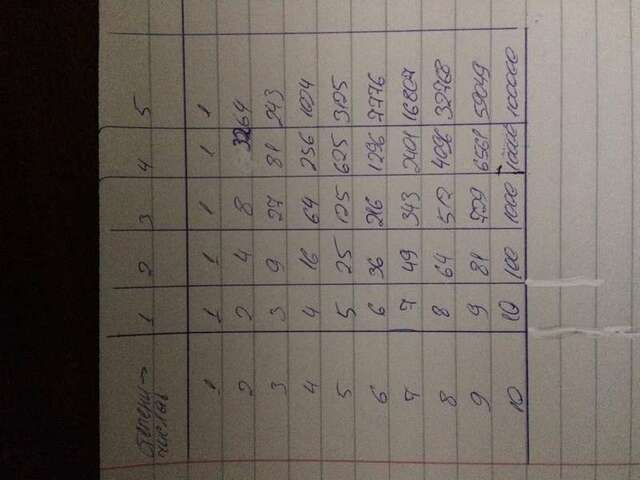 Степени→ 1 2 3 4 5
числа
1 1 1 1 1 1
2 2 4 8 32 64
3 3 9 27 81 243
4 4 16 64 256 1024
5 5 25 125 625 3125
6 6 36 216 1296 7776
7 7 49 343 2401 16807
8 8 64 512 4096 32768
9 9 81 729 6561 59049
10 10 100 1000 10000 100000